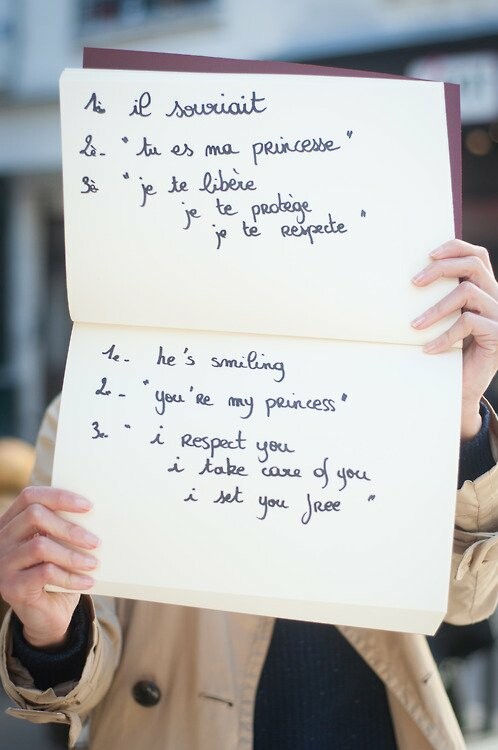 1. il souriait
2.- "tu es ma princesse"
3. "je te libère
je te protège
je te respecte"
1.- he's smiling
2.- "you're my princess"
3.- "i respect you
i take care of you
i set you free"